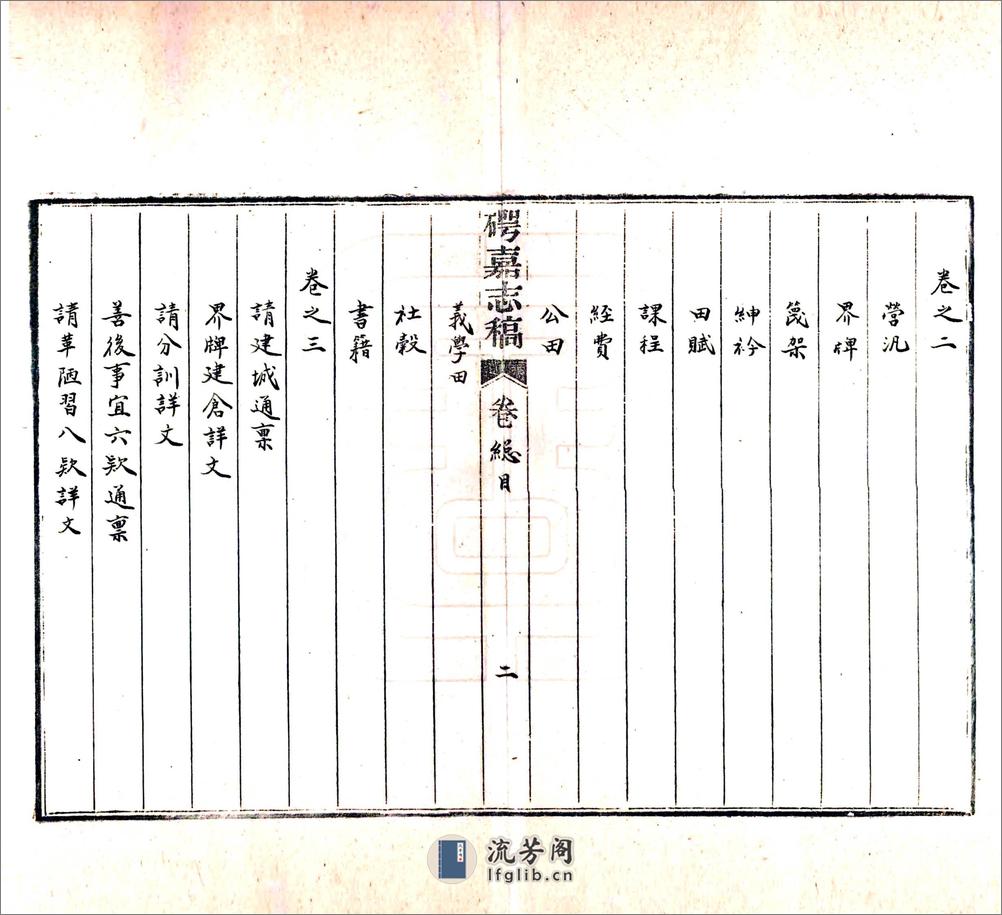 卷之二
營汛
界牌
篾架
紳衿
田賦
課程
經費
公田
碍嘉志稿
卷總目
二
義學田
社穀
書籍
卷之三
請建城通稟
界牌建倉詳文
請分訓詳文
善後事宜六欵通稟
請革陋習八欵詳文
流芳阁
lfglib.cn